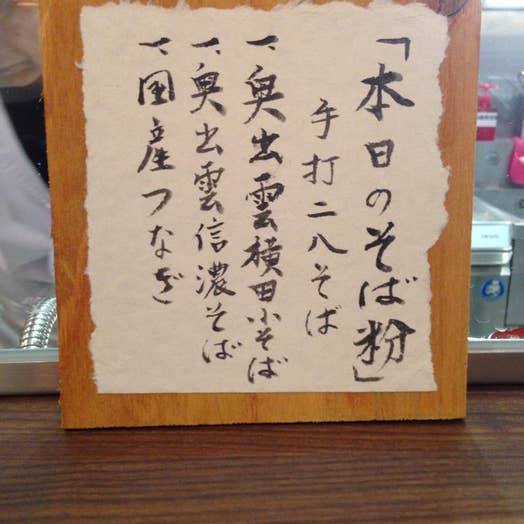 「本日のそば粉」
手打二八そば
一、奥出雲横田小そば
一、奥出雲信濃そば
一、国産つなぎ